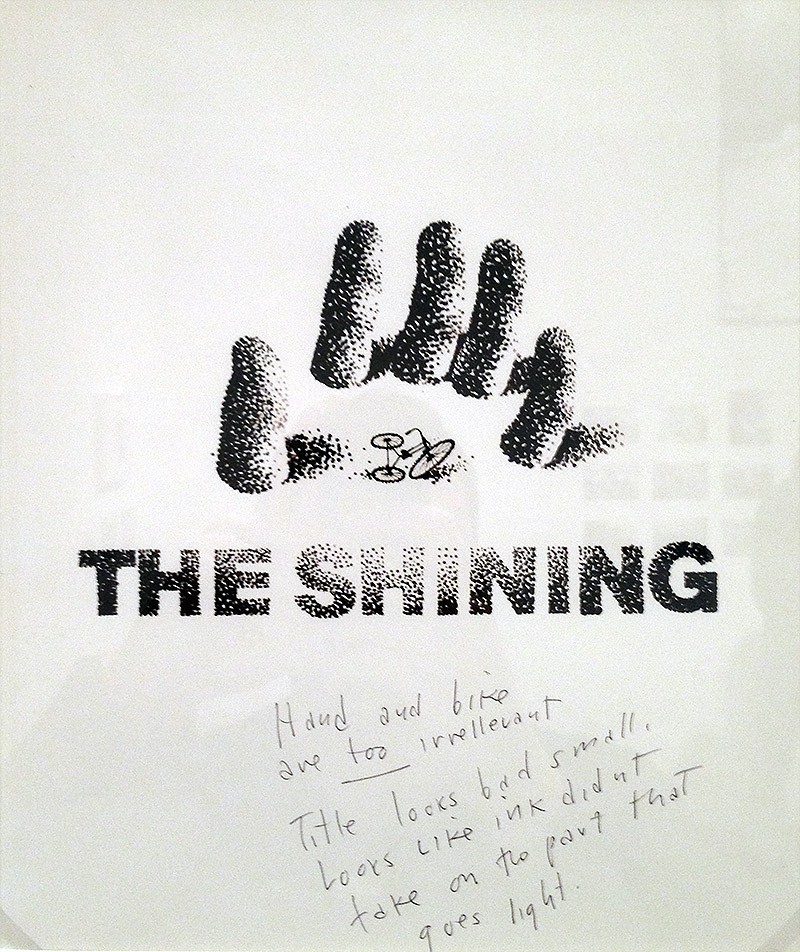 THE SHINING
Hand and bike
are too irrellevant
Title looks bad small.
Looks like ink didnt
take on the part that
goes light.